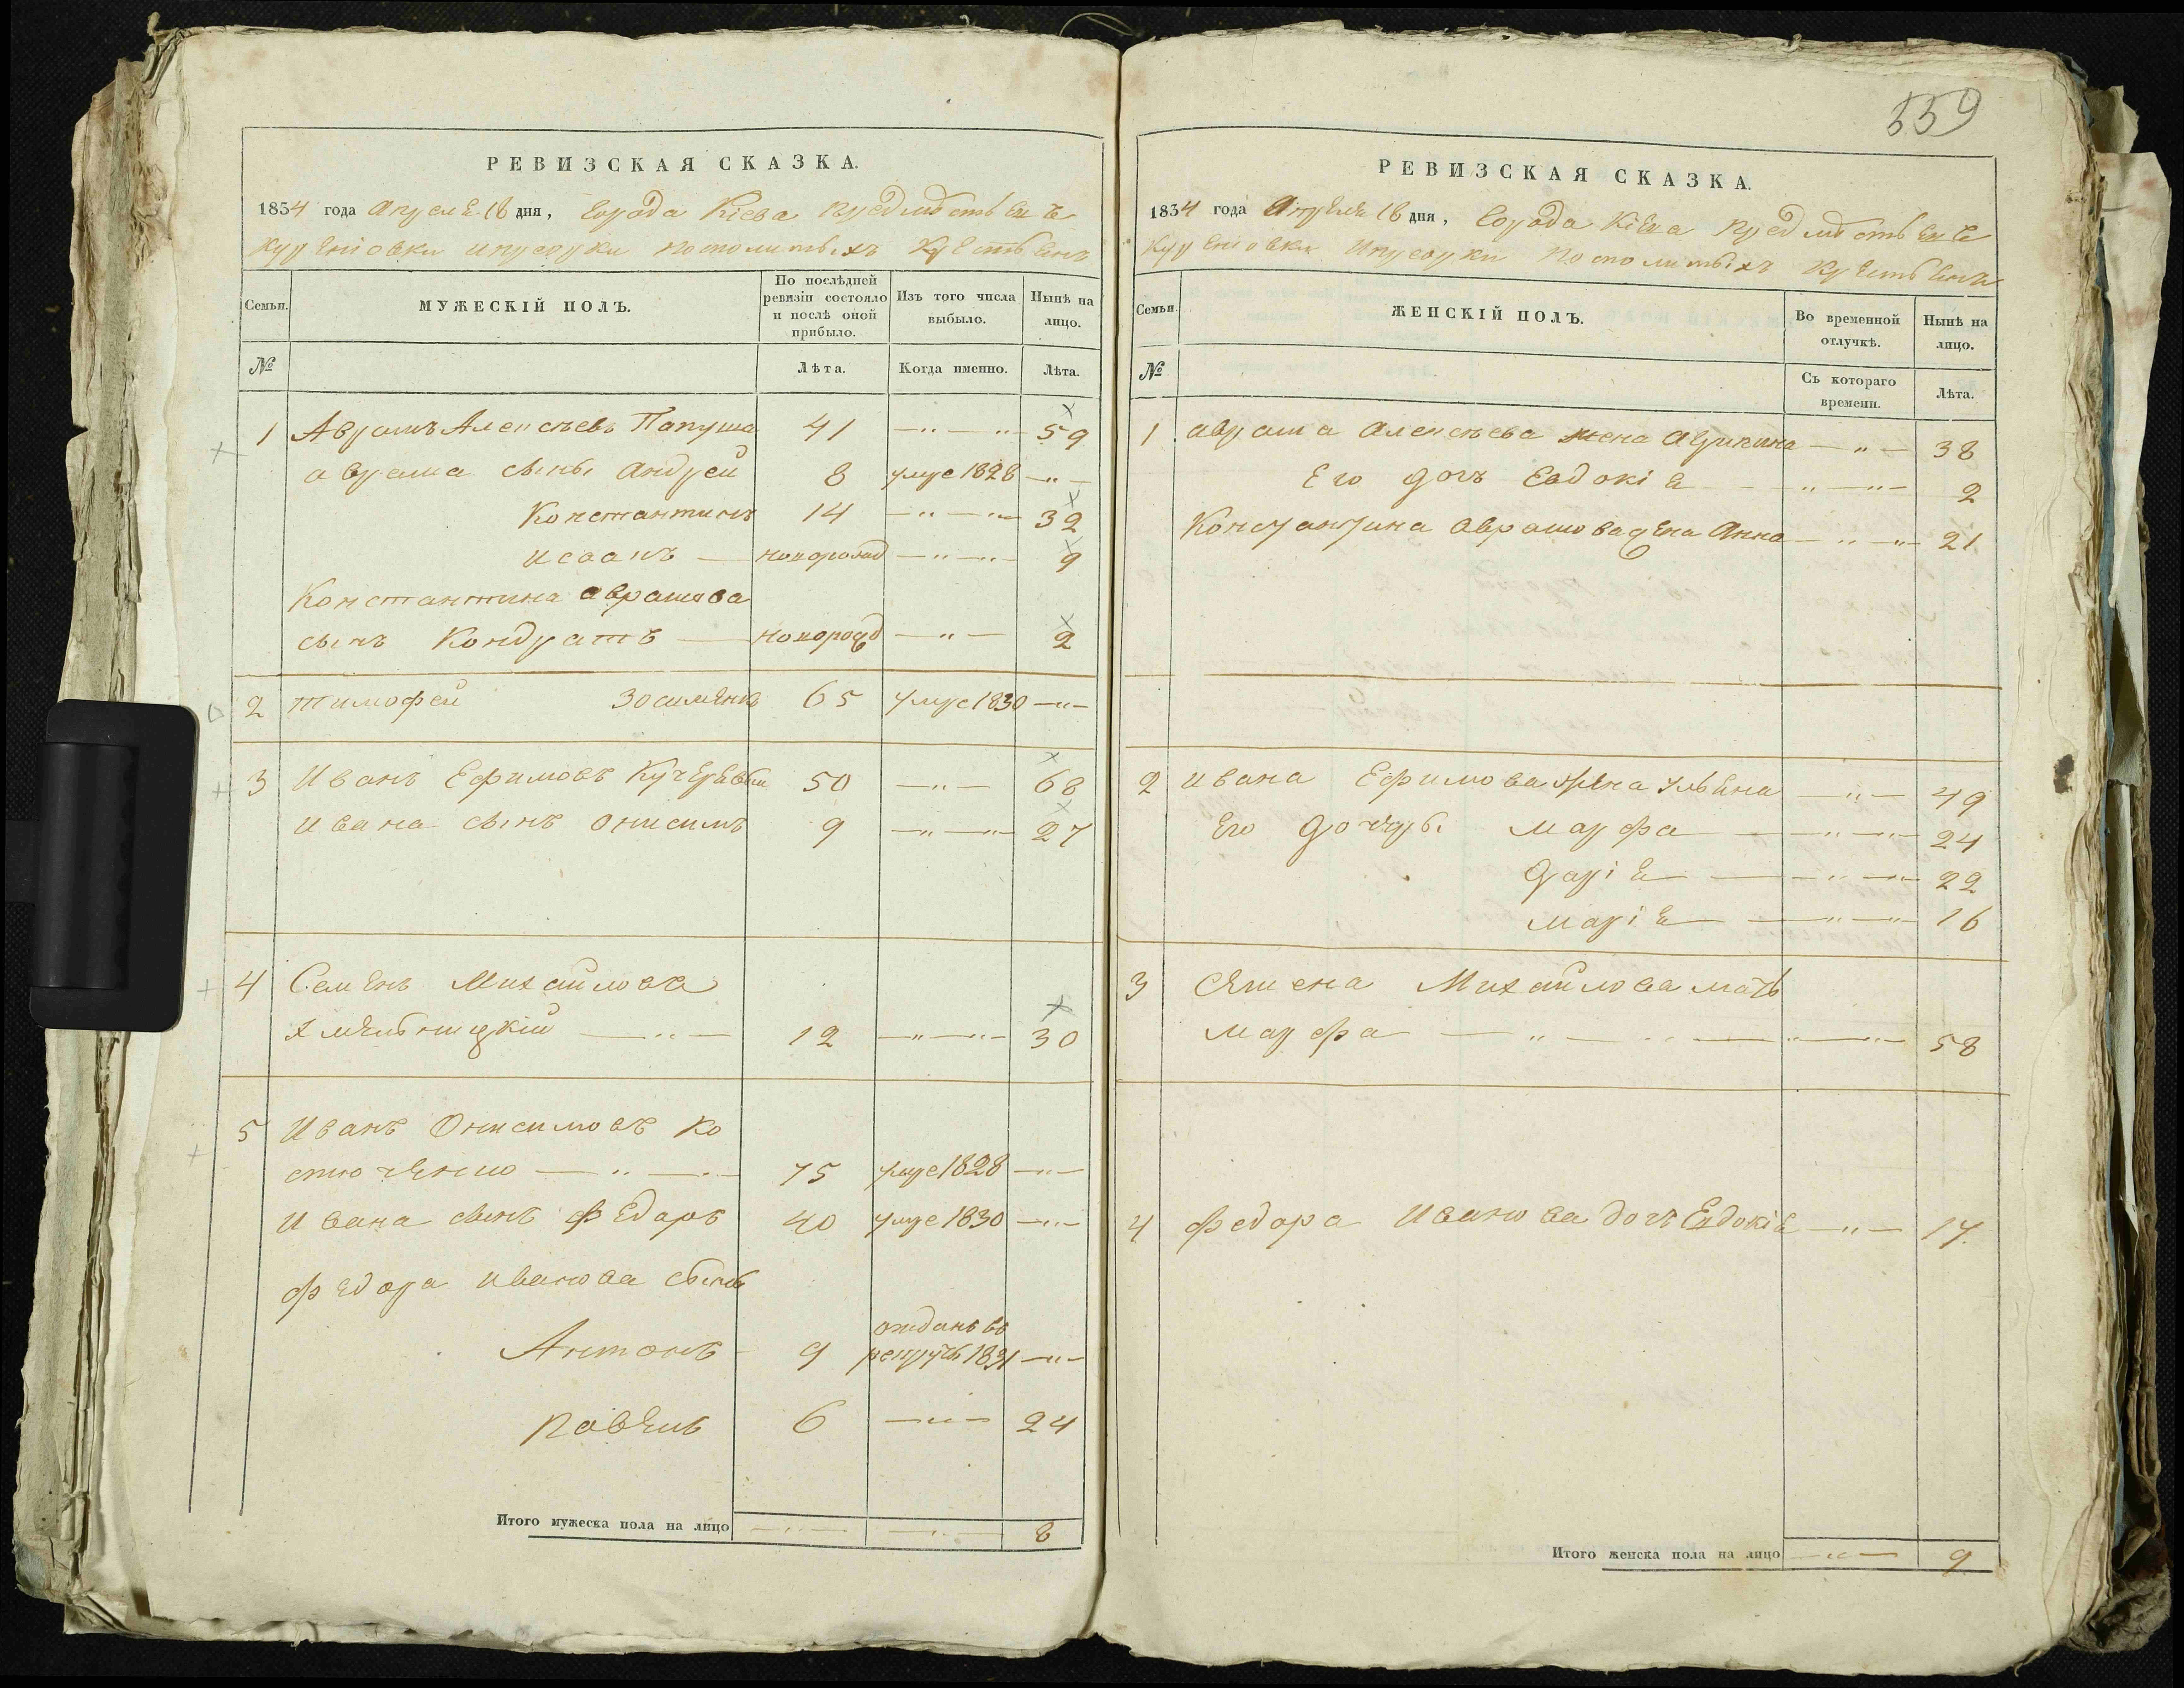 РЕВИЗСКАЯ СКАЗКА.
1834 года Апреля 18 дня, города Кіева предместья
Куреніовки и присорки посполитыхъ крестьянъ
Семьи.
МУЖЕСКІЙ ПОЛЪ.
По послѣдней ревизіи состояло и послѣ оной прибыло.
Изъ того числа выбыло.
Нынѣ на лицо.
№
Лѣта.
Когда именно.
Лѣта.
1 Аврамъ Алексѣевъ Папуша 41 59
аврама сыны Андрей 8 умре 1828
Константинъ 14 32
Исаакъ новорожд 9
Константина аврамова
сынъ Кондратъ новорожд 2
2 Тимофей Зосименко 65 умре 1830
3 Иванъ Ефимовъ Кучерявый 50 68
Ивана сынъ Онисимъ 9 27
4 Семенъ Михайловъ
Хмельницкій 12 30
5 Иванъ Онисимовъ Ко
стюченко 75 умре 1828
Ивана сынъ Федоръ 40 умре 1830
Федора Иванова сыны
Антонъ 9 отданъ въ рекруты 1831
Павелъ 6 24
Итого мужеска пола на лицо 8
559
РЕВИЗСКАЯ СКАЗКА.
1834 года Апреля 18 дня, города Кіева предместья
Куреніовки и присорки посполитыхъ крестьянъ
Семьи.
ЖЕНСКІЙ ПОЛЪ.
Во временной отлучкѣ.
Нынѣ на лицо.
№
Съ котораго времени.
Лѣта.
1 аврама Алексѣева жена 38
Его дочь Евдокія 2
Константина Аврамова жена Анна 21
2 Ивана Ефимова жена Ульяна 49
Его дочери Марфа 24
Дарія 22
Марія 16
3 Семена Михайлова мать
Марфа 58
4 Федора Иванова дочь Евдокія 17
Итого женска пола на лицо 9